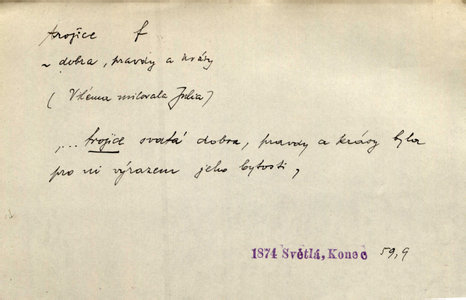 trojice f
~ dobra, pravdy a krásy
( Viléma milovala Julia )
„... trojice svatá dobra, pravdy a krásy byla
pro ni výrazem jeho bytosti,
1874 Světlá, Konec 59,9